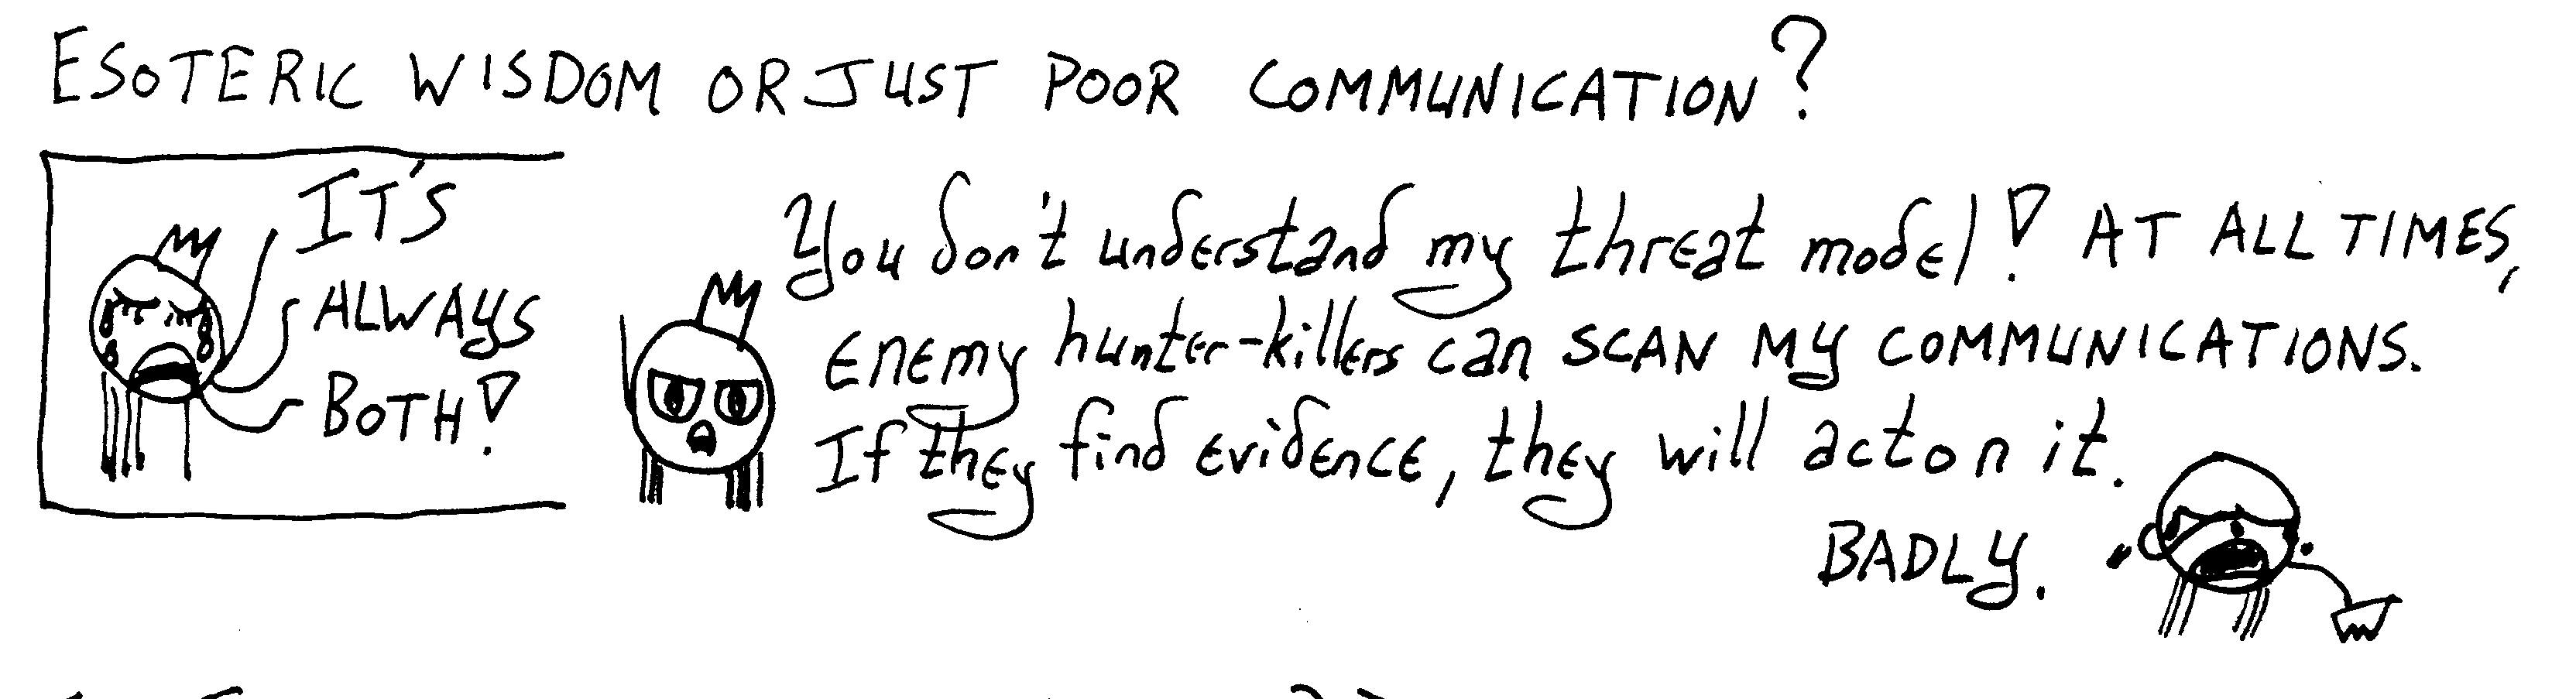 ESOTERIC WISDOM OR JUST POOR COMMUNICATION?
IT'S
ALWAYS
BOTH!
You don't understand my threat model! AT ALL TIMES,
enemy hunter-killers can SCAN MY COMMUNICATIONS.
If they find evidence, they will act on it.
BADLY.